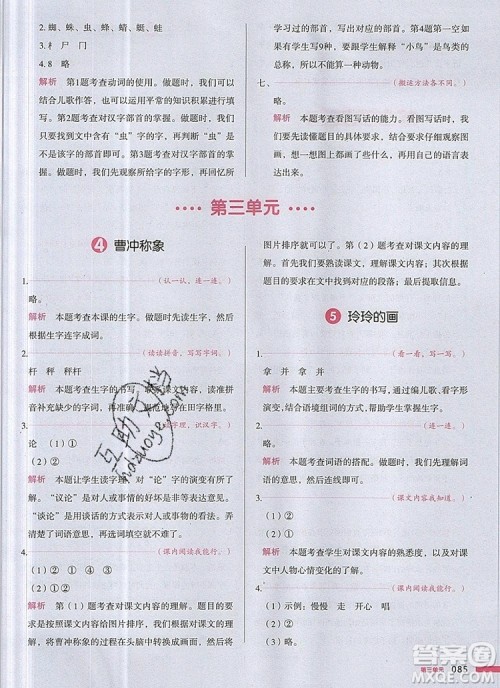 2. 蜘、蛛、蚯、蚓、蜻、蜓、蛙
3. 彳 尸 门
4. 8 略
解析 第1题考查动词的使用。做题时，我们可以
结合儿歌作答，也可以运用平常的生活积累进行填
写。第2题考查对汉字部首的掌握。做题时，我们
只要找到文中含有“虫”字的词即可，“虫”就
是该字的部首即可。第3题考查对汉字部首的掌
握。做题时，我们先观察生字，然后可以回忆所
学习过的部首，写出该字的部首。第4题第一空
要写9种，
要求学生了解“小鸟”是鸟类的
总称，并不是一种动物。
七、（搬运方法各不同。）
略。
解析 本题考查看图写话的能力。做题时，我们
要先读懂题目的具体要求，然后仔细观察图
画，想一想画意，再用自己的语言表达
出来。
第三单元
4 曹冲称象
1. （认一认，连一连。）
略。
解析 本题考查本课的生字。做题时，先读生字，
然后根据生字连字成词。
2. （读读拼音，写写字词。）
杆 秤 秤杆
解析 本题考查生字的书写，联系课文，读准拼
音填补缺少的字词，再准确、规范地写在田字格里。
3. （字理字理，识汉字。）
论 （1）② （2）①
解析 本题让学生读字理，对“论”字的演变有
了解。“议论”是对人或事情的好坏、是非等表
示意见。
“谈论”是用谈话的方式表示对人或事物的看法。
弄清楚了词语意思，再进行选择填空。
4. （课内阅读我能行。）
（1）② ① ④ ③
（2）略。
解析 第（1）题考查对课文内容的理解。做题时，
将曹冲称象的过程在头脑中转换成画面，然后给
图片排序就可以了。第（2）题考查对课文内容的理
解。首先我们要熟读课文，理解内容；其次根据
题目的要求在文中找到对应的段落；最后提取信息。
5 玲玲的画
1. （看一看，写一写。）
拿 并 拿 并
解析 本题主要考查生字，通过编儿歌、看字形
演变，结合语境组词的方式，帮助学生更好地掌
握生字。
2.
（1）① （2）②
解析 本题考查词语的搭配。做题时，先理解词
语的意思，然后根据语境进行选择。
3. （课文内容我知道。）
（1）② （2）①
解析 本题考查学生对课文的熟悉度，以及对课
文中人物心情变化的了解。
4. （课内阅读我能行。）
（1）示例：慢慢 走 开心 唱
（2）① ②
第三单元 085
互助文档
hdzuoye.com
答案圈
MXQE.COM